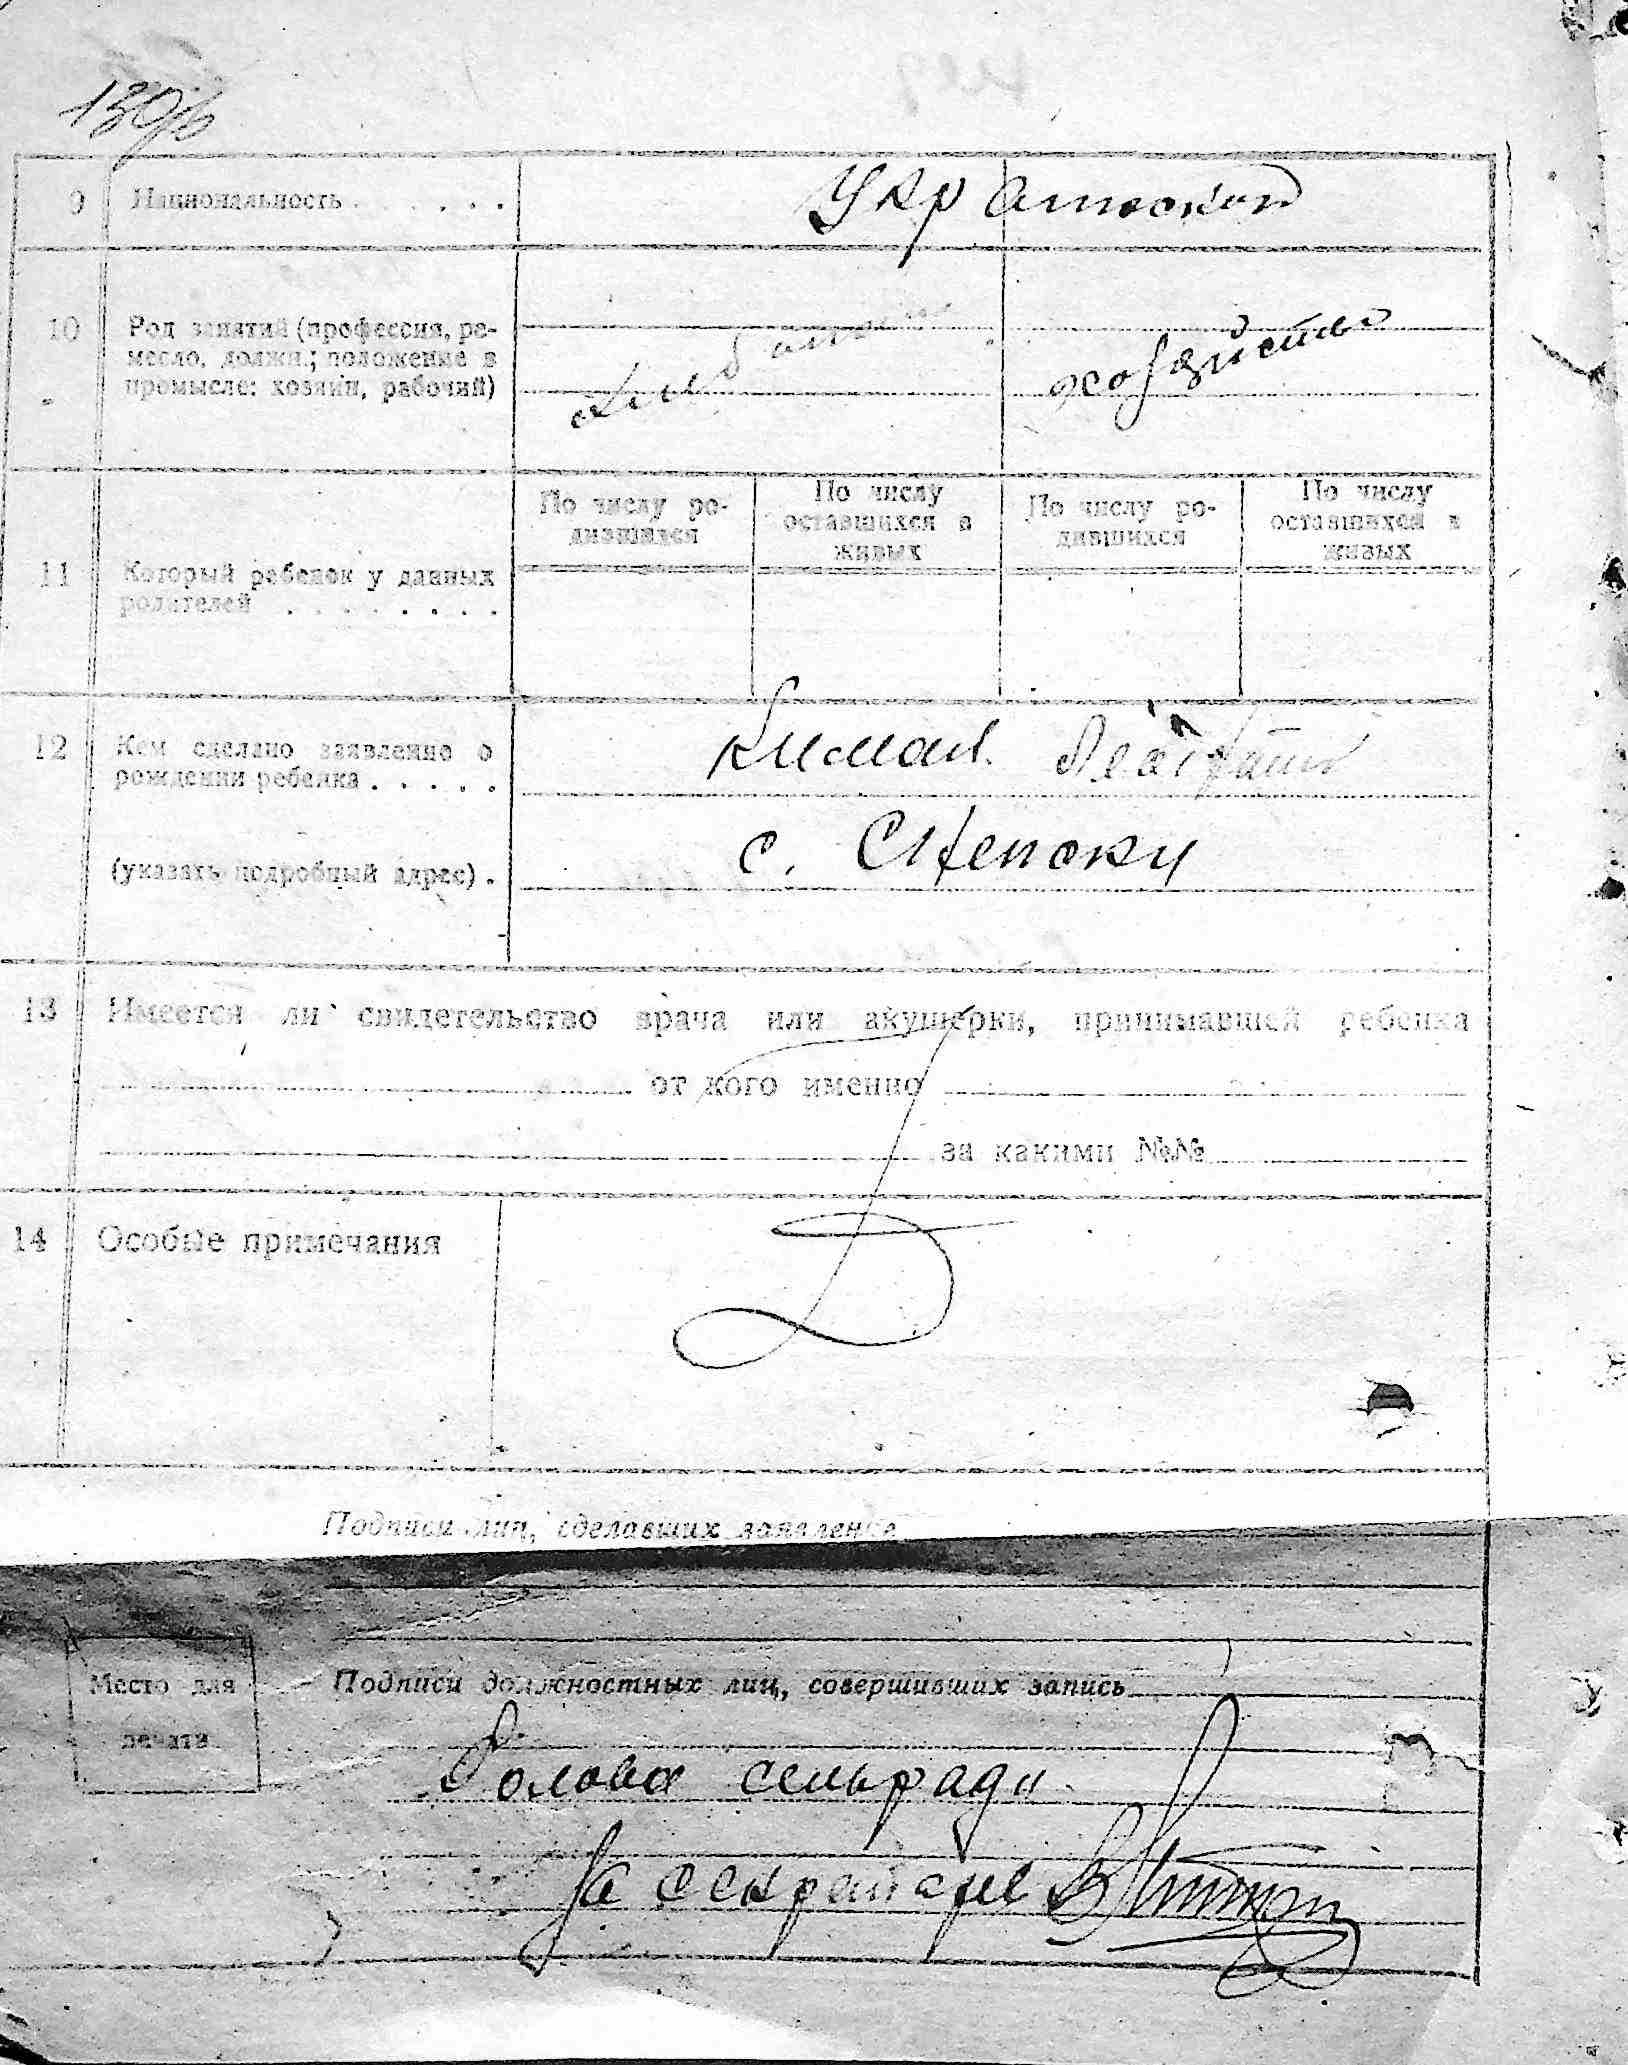 9 Национальность . . . . . .
10 Род занятий (профессия, ре-
месло, должн.; положение в
промысле: хозяин, рабочий)
хозяйство
По числу ро-
дившихся
По числу
оставшихся в
живых
По числу ро-
дившихся
По числу
оставшихся в
живых
11 Который ребенок у данных
родителей . . . . . . . .
12 Кем сделано заявление о
рождении ребенка . . . . .
(указать подробный адрес) .
с.
13 Имеется ли свидетельство врача или акушерки, принимавшей ребенка
от кого именно
за какими №№
14 Особые примечания
Подписи лиц, сделавших заявление
Место для
печати
Подписи должностных лиц, совершивших запись
Голова сельради
За секретаря